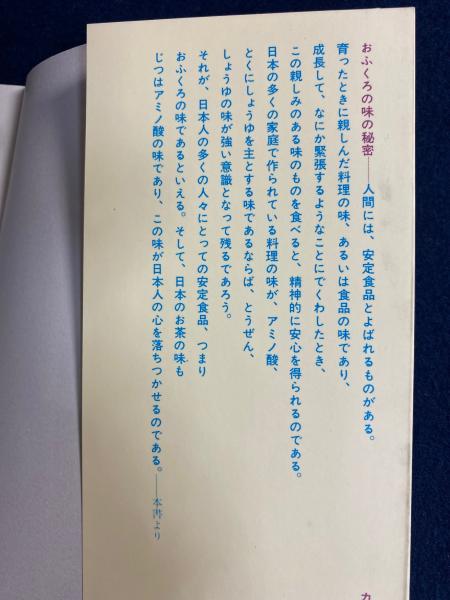 おふくろの味の秘密――人間には、安定食品とよばれるものがある。
育ったときに親しんだ料理の味、あるいは食品の味であり、
成長して、なにか緊張するようなことにでくわしたとき、
この親しみのある味のものを食べると、精神的に安心を得られるのである。
日本の多くの家庭で作られている料理の味が、アミノ酸、
とくにしょうゆを主とする味であるならば、とうぜん、
しょうゆの味が強い意識となって残るであろう。
それが、日本人の多くの人々にとっての安定食品、つまり
おふくろの味であるといえる。そして、日本のお茶の味も
じつはアミノ酸の味であり、この味が日本人の心を落ちつかせるのである。――本書より
カ